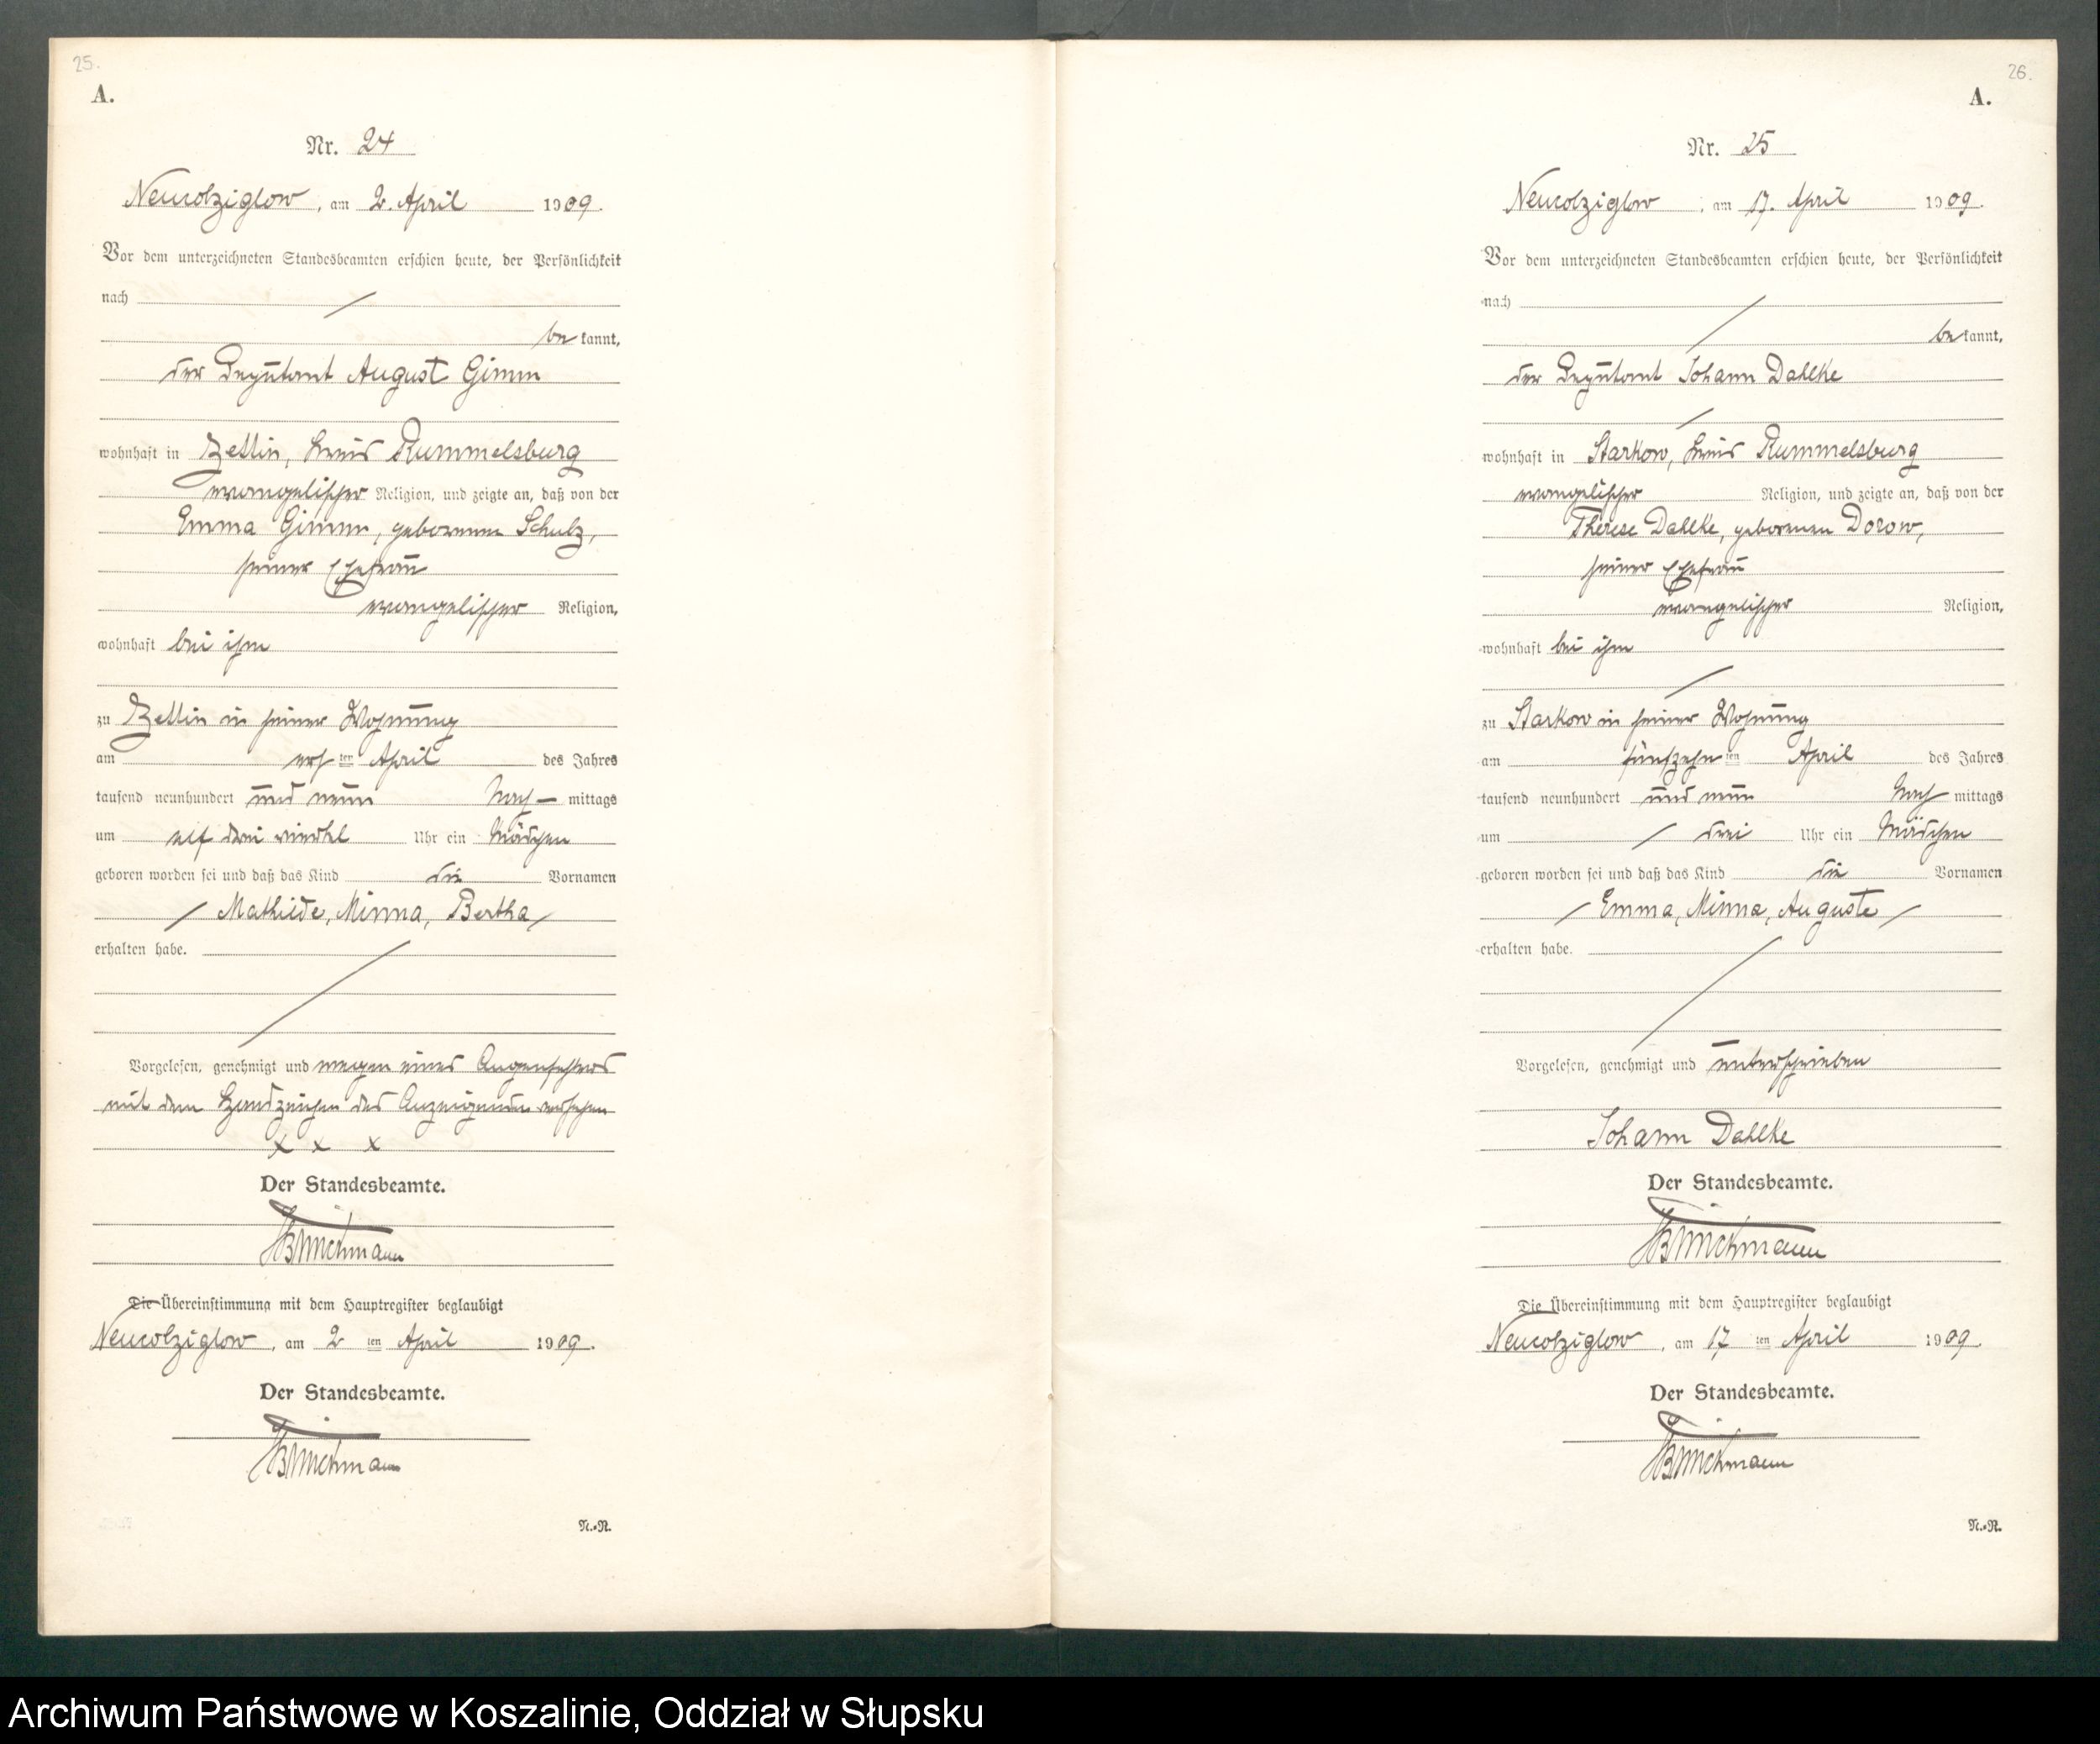 25.
A.
Nr. 24
Neucolziglow, am 2. April 1909.
Vor dem unterzeichneten Standesbeamten erschien heute, der Persönlichkeit
nach
be kannt,
der Deputant August Gimm
wohnhaft in Zettin, Kreis Rummelsburg
evangelischer Religion, und zeigte an, daß von der
Emma Gimm, geborenen Schulz,
seiner Ehefrau
evangelischer Religion,
wohnhaft bei ihm
zu Zettin in seiner Wohnung
am ersten April des Jahres
tausend neunhundert und neun Nach- mittags
um elf drei viertel Uhr ein Mädchen
geboren worden sei und daß das Kind die Vornamen
Mathilde, Minna, Bertha
erhalten habe.
Vorgelesen, genehmigt und wegen eines Augenfehlers
mit dem Handzeichen des Anzeigenden versehen
x x x
Der Standesbeamte.
Brückmann
Die Übereinstimmung mit dem Hauptregister beglaubigt
Neucolziglow, am 2 ten April 1909.
Der Standesbeamte.
Brückmann
N.-R.
26.
A.
Nr. 25
Neucolziglow, am 17. April 1909.
Vor dem unterzeichneten Standesbeamten erschien heute, der Persönlichkeit
nach
be kannt,
der Deputant Johann Dahlke
wohnhaft in Starkow, Kreis Rummelsburg
evangelischer Religion, und zeigte an, daß von der
Therese Dahlke, geborenen Dorow,
seiner Ehefrau
evangelischer Religion,
wohnhaft bei ihm
zu Starkow in seiner Wohnung
am fünfzehnten April des Jahres
tausend neunhundert und neun Nach mittags
um drei Uhr ein Mädchen
geboren worden sei und daß das Kind die Vornamen
Emma, Minna, Auguste
erhalten habe.
Vorgelesen, genehmigt und unterschrieben
Johann Dahlke
Der Standesbeamte.
Brückmann
Die Übereinstimmung mit dem Hauptregister beglaubigt
Neucolziglow, am 17 ten April 1909.
Der Standesbeamte.
Brückmann
N.-R.
Archiwum Państwowe w Koszalinie, Oddział w Słupsku